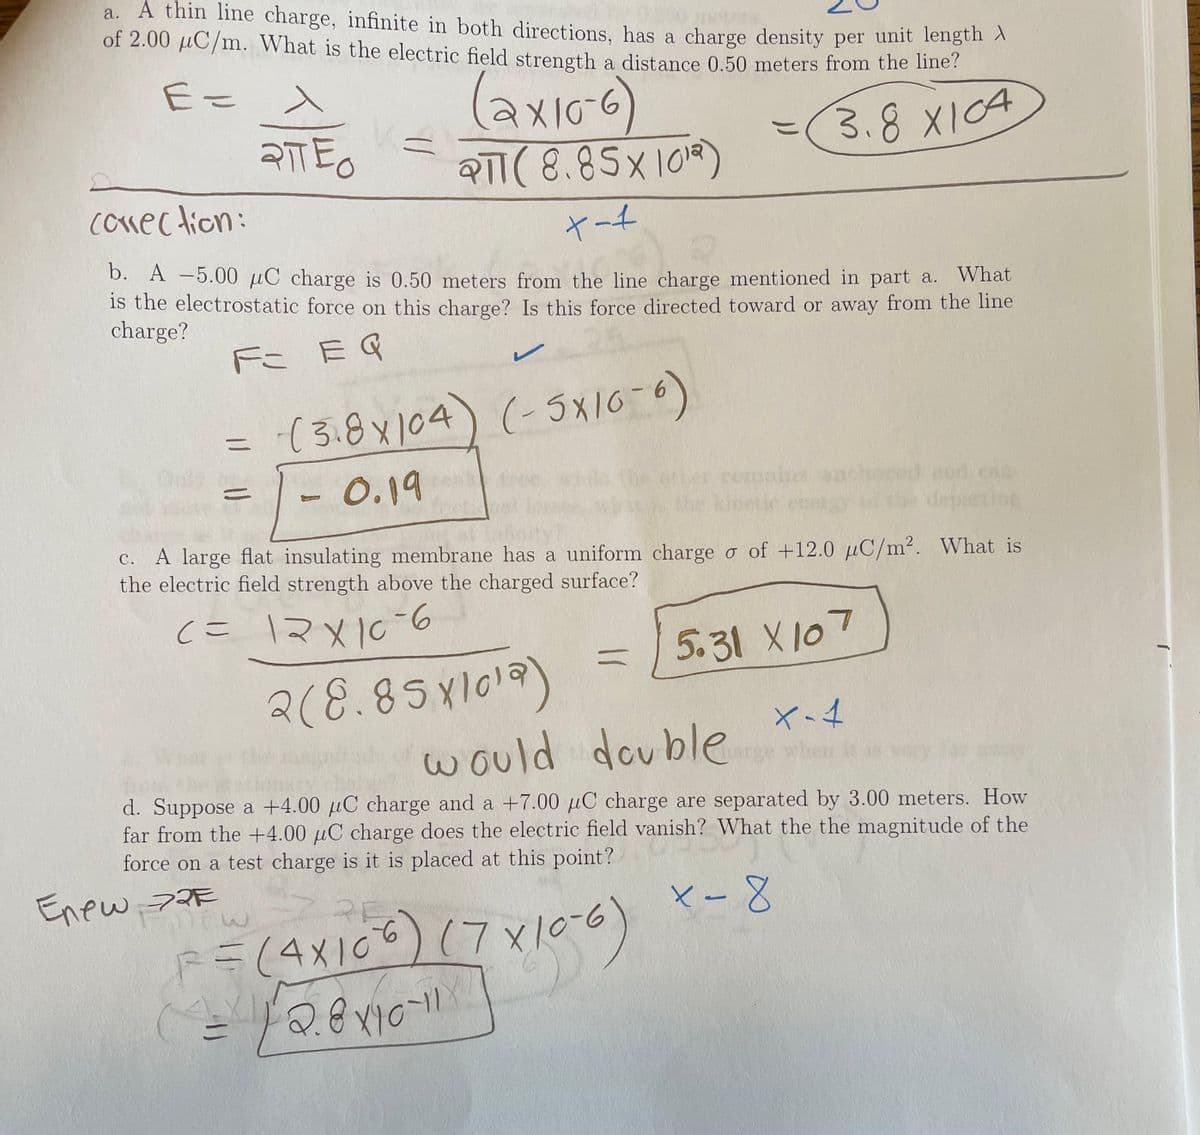 a. A thin line charge, infinite in both directions, has a charge density per unit length λ
of 2.00 μC/m. What is the electric field strength a distance 0.50 meters from the line?
E = λ / 2πE₀ = (2×10⁻⁶) / 2π(8.85×10¹²) = 3.8 ×10⁴
correction:
x-1
b. A −5.00 μC charge is 0.50 meters from the line charge mentioned in part a. What
is the electrostatic force on this charge? Is this force directed toward or away from the line
charge?
F= EQ ✓
= (3.8×10⁴) (-5×10⁻⁶)
= - 0.19
c. A large flat insulating membrane has a uniform charge σ of +12.0 μC/m². What is
the electric field strength above the charged surface?
c = 12×10⁻⁶ / 2(8.85×10¹²) = 5.31 ×10⁷
x-1
would double
d. Suppose a +4.00 μC charge and a +7.00 μC charge are separated by 3.00 meters. How
far from the +4.00 μC charge does the electric field vanish? What the the magnitude of the
force on a test charge is it is placed at this point?
Enew → 2E
x-8
F = (4×10⁻⁶) (7×10⁻⁶)
= 2.8×10⁻¹¹